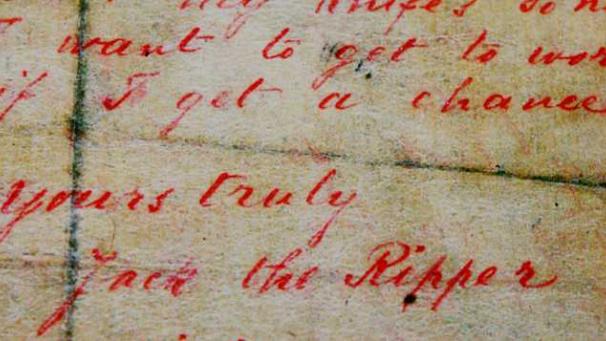 my knife's so n
I want to get to wor
if I get a chance
yours truly
Jack the Ripper